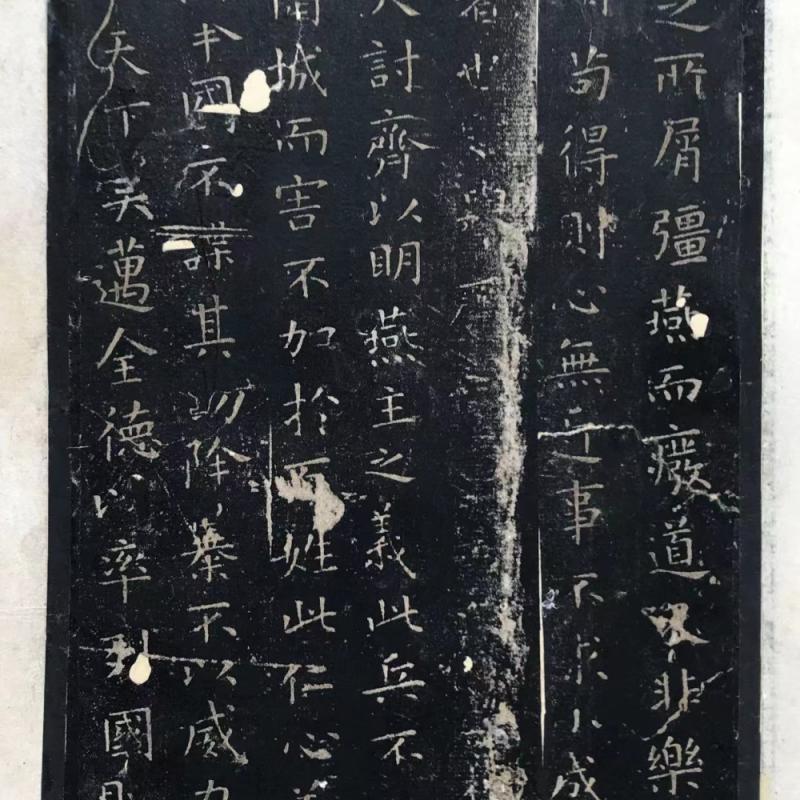 之所屑彊燕而癈道又非樂
苟得則心無近事不求小成
者也
夫討齊以明燕主之義此兵不
圍城而害不加於百姓此仁心
舉國不謀其功除暴不以威力
天下矣邁全德以率列國則